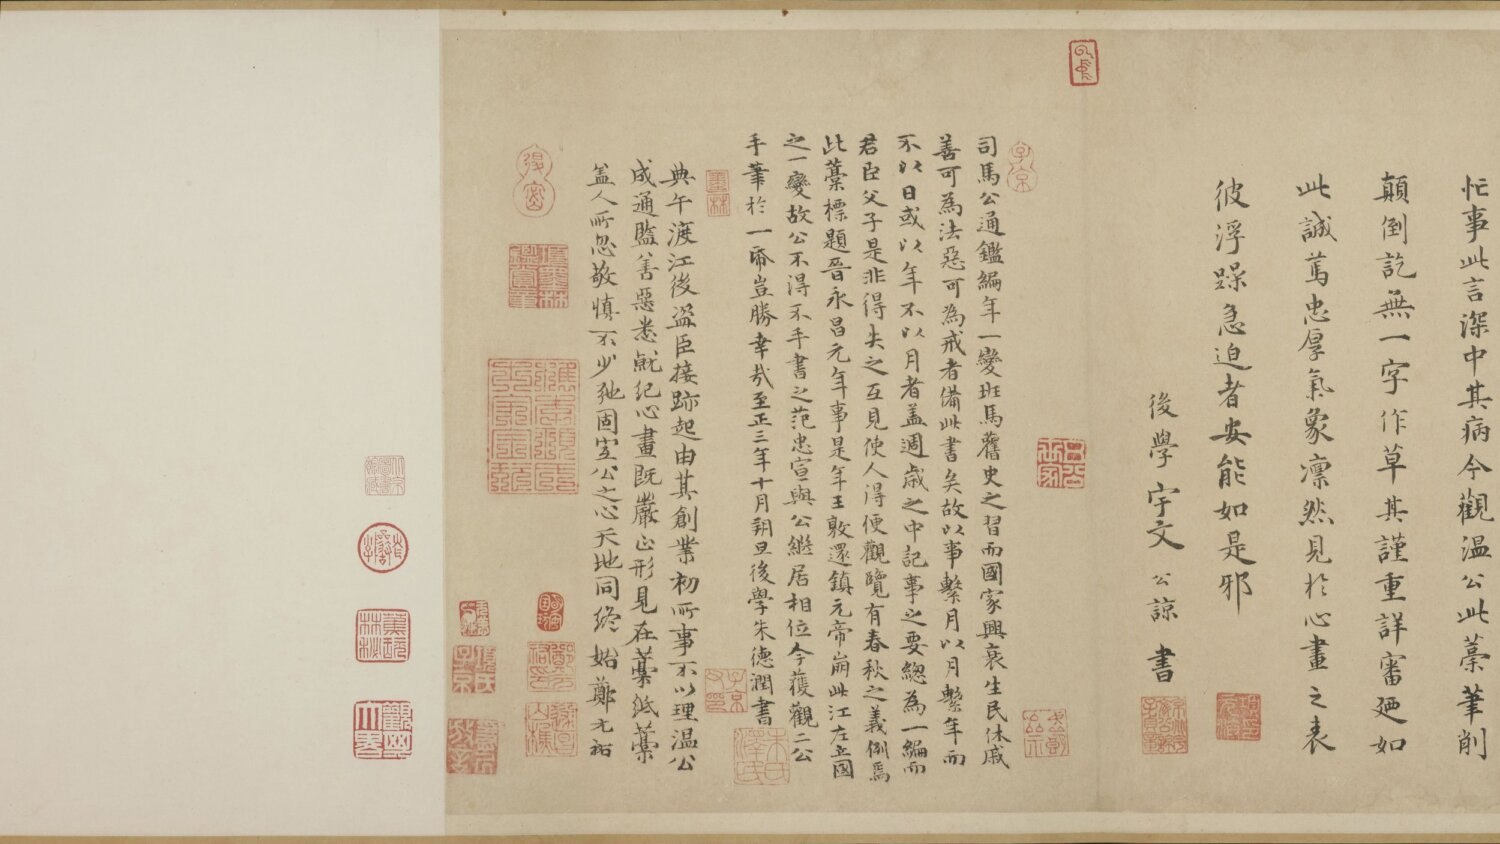 忙事此言深中其病今觀温公此藁筆削
顛倒訖無一字作草其謹重詳審廼如
此誠篤忠厚氣象凛然見於心畫之表
彼浮躁急迫者安能如是邪
後學宇文公諒書
司馬公通鑑編年一變班馬舊史之習而國家興衰生民休戚
善可為法惡可為戒者備此書矣故以事繫月以月繫年而
不以日或以年不以月者盖週歲之中記事之要緫為一編而
君臣父子是非得失之互見使人得便觀覽有春秋之義例焉
此藁標題晉永昌元年事是年王敦還鎮元帝崩此江左立國
之一變故公不得不手書之范忠宣與公繼居相位今獲觀二公
手筆於一帋豈勝幸哉至正三年十月朔旦後學朱德潤書
典午渡江後盗臣接跡起由其創業初所事不以理温公
成通監善惡悉就紀心畫既嚴正形見在藁紙藁
盖人所忽敬慎不少弛固宜公之心天地同終始鄭元祐